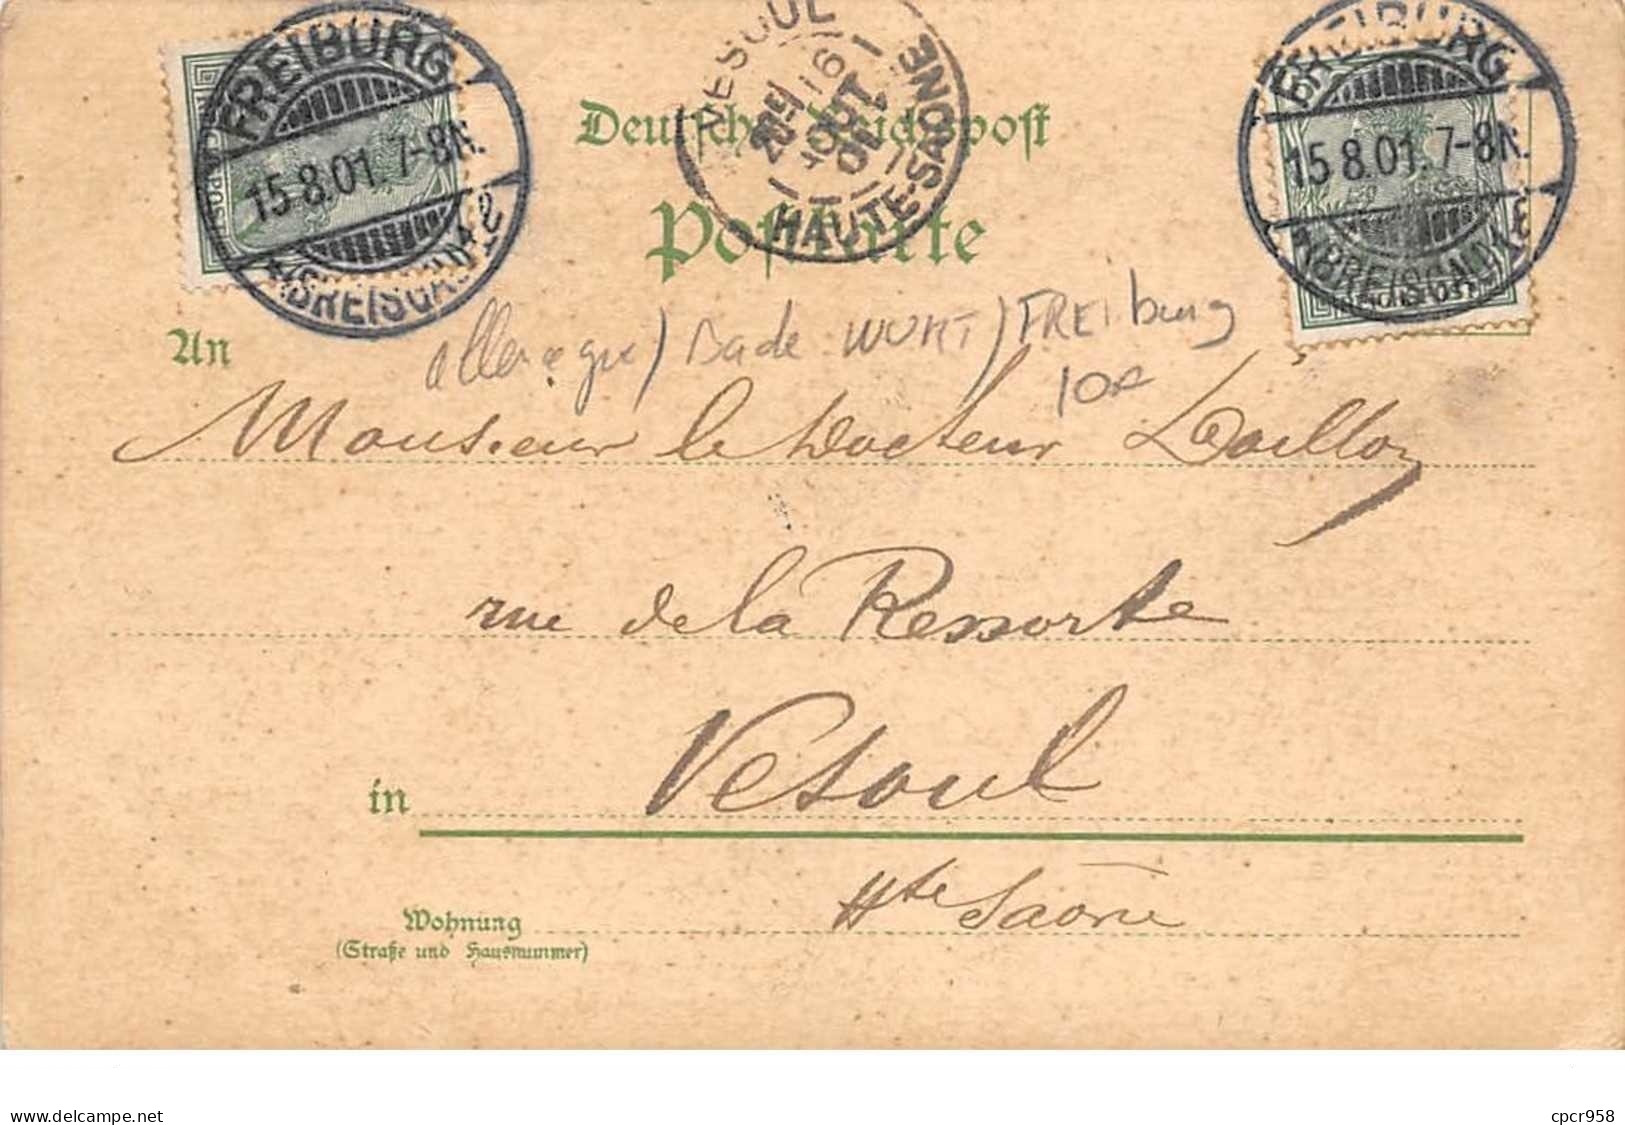 FREIBURG
15.8.01.7-8N.
(BREISGAU) *2
VESOUL
16
AOUT
01
HAUTE-SAONE
FREIBURG
15.8.01.7-8N.
(BREISGAU)
Deutsche Reichspost
Postkarte
An
allemagne) Bade WURT) FREIburg
10€
Monsieur le Docteur Doillon
rue de la Ressorte
in Vesoul
Hte Saône
Wohnung
(Straße und Hausnummer)
www.delcampe.net
cpcr958